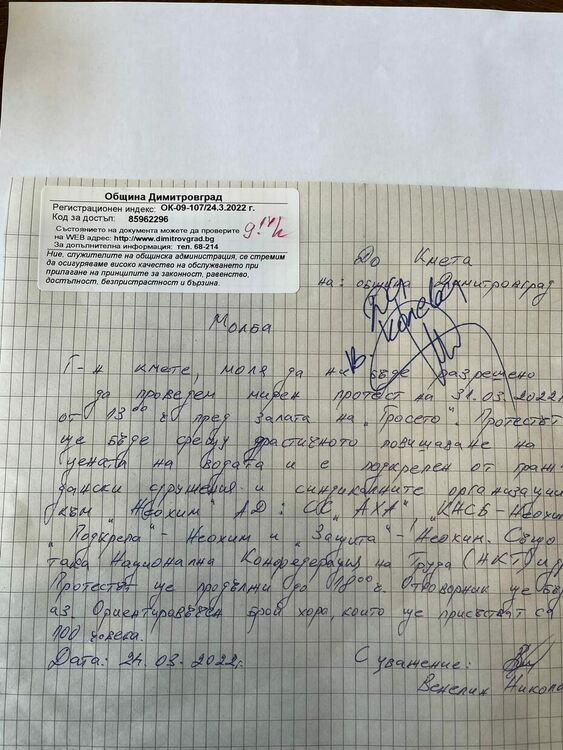 Община Димитровград
Регистрационен индекс: ОК-09-107/24.3.2022 г.
Код за достъп: 85962296
Състоянието на документа можете да проверите
на WEB адрес: http://www.dimitrovgrad.bg
За допълнителна информация: тел. 68-214
Ние, служителите на общинска администрация, се стремим
да осигуряваме високо качество на обслужването при
прилагане на принципите за законност, равенство,
достъпност, безпристрастност и бързина.
До Кмета
на: община Димитровград
Молба
Г-н кмете, моля да ни бъде разрешено
да проведем мирен протест на 31.03.2022г
от 13⁰⁰ ч пред залата на "Гросето". Протестът
ще бъде срещу драстичното повишаване на
цената на водата и е подкрепен от граж-
дански сдружения и синдикалните организации
към "Неохим" АД: СС "АХА", "КНСБ-Неохим
"Подкрепа"- Неохим и "Защита"- Неохим. Също
така Национална Конфедерация на Труда (НКТ) и др
Протестът ще продължи до 18⁰⁰ ч. Отговорник ще бъд
аз. Ориентировъчен брой хора, които ще присъстват са
100 човека.
Дата: 24.03.2022г.
С уважение:
Венелин Никола